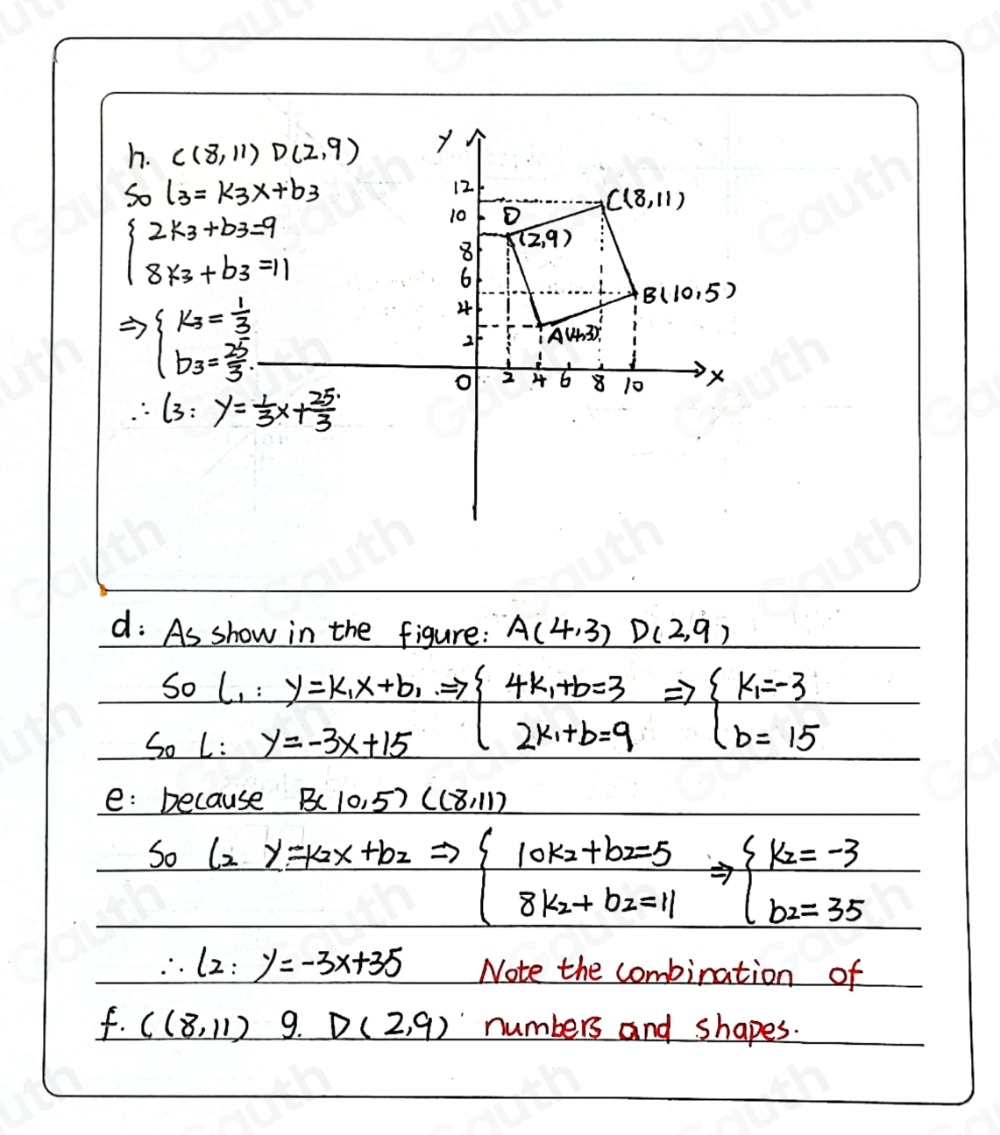 h. C(8,11) D(2,9)
So l3=K3X+b3
{ 2K3+b3=9
8K3+b3=11
⇒ { K3=1/3
b3=25/3.
∴ l3: y=1/3x+25/3
y
12
10
8
6
4
2
0 2 4 6 8 10 x
D
(2,9)
C(8,11)
B(10,5)
A(4,3)
d: As show in the figure: A(4,3) D(2,9)
So l1: y=K1X+b1 ⇒ { 4K1+b=3 ⇒ { K1=-3
So L: y=-3x+15 2K1+b=9 b=15
e: because B(10,5) C(8,11)
So l2 y=K2x+b2 ⇒ { 10K2+b2=5 ⇒ { K2=-3
8K2+b2=11 b2=35
∴ l2: y=-3x+35 Note the combination of
f. C(8,11) g. D(2,9) numbers and shapes.
Gauth